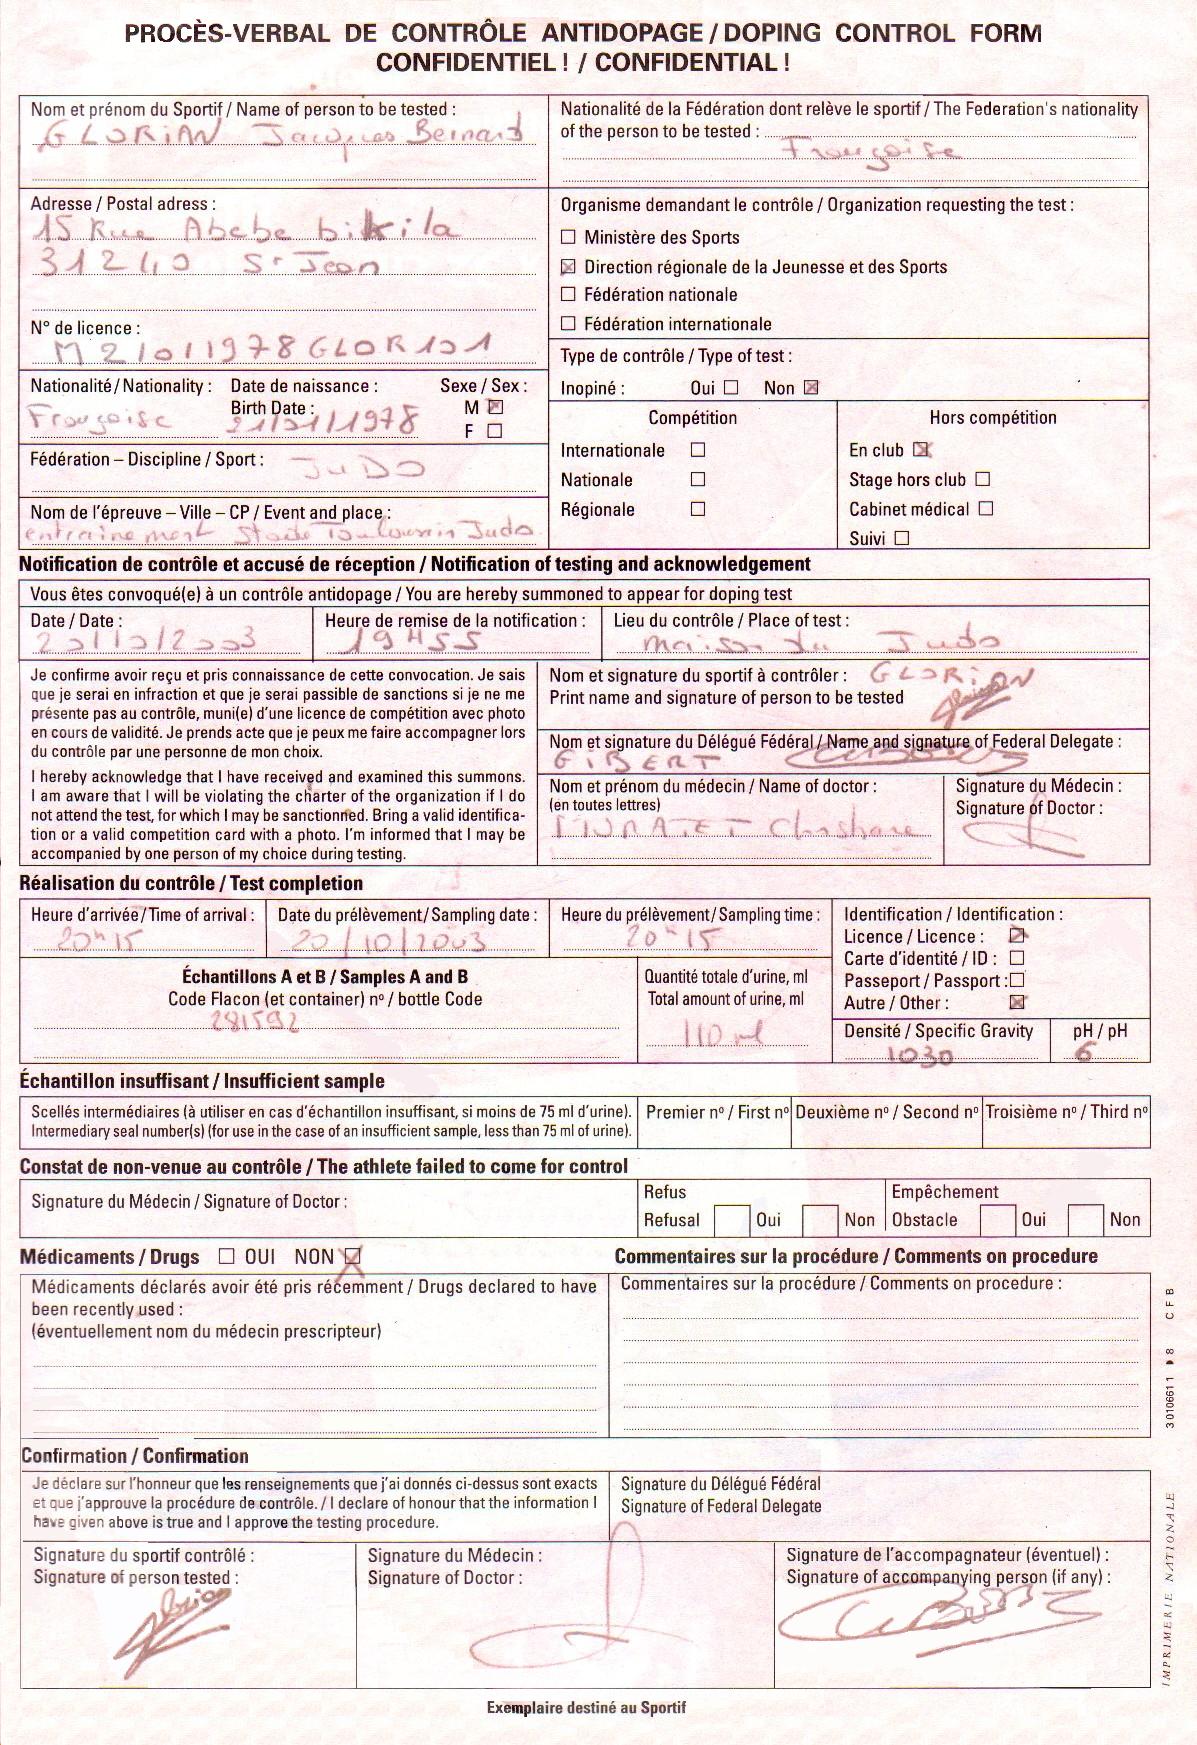 PROCÈS-VERBAL DE CONTRÔLE ANTIDOPAGE / DOPING CONTROL FORM
CONFIDENTIEL ! / CONFIDENTIAL !
Nom et prénom du Sportif / Name of person to be tested :
GLORIAN Jacques Bernard
Nationalité de la Fédération dont relève le sportif / The Federation's nationality
of the person to be tested :
Française
Adresse / Postal adress :
15 Rue Abebe bikila
31240 St Jean
N° de licence :
M21011978GLOR101
Organisme demandant le contrôle / Organization requesting the test :
Ministère des Sports
Direction régionale de la Jeunesse et des Sports
Fédération nationale
Fédération internationale
Nationalité / Nationality :
Française
Date de naissance :
Birth Date :
21/01/1978
Sexe / Sex :
M
F
Type de contrôle / Type of test :
Inopiné : Oui Non
Compétition
Internationale
Nationale
Régionale
Hors compétition
En club
Stage hors club
Cabinet médical
Suivi
Fédération – Discipline / Sport :
JUDO
Nom de l'épreuve – Ville – CP / Event and place :
entrainement Stade Toulousain Judo
Notification de contrôle et accusé de réception / Notification of testing and acknowledgement
Vous êtes convoqué(e) à un contrôle antidopage / You are hereby summoned to appear for doping test
Date / Date :
20/10/2003
Heure de remise de la notification :
19H55
Lieu du contrôle / Place of test :
maison du Judo
Je confirme avoir reçu et pris connaissance de cette convocation. Je sais
que je serai en infraction et que je serai passible de sanctions si je ne me
présente pas au contrôle, muni(e) d'une licence de compétition avec photo
en cours de validité. Je prends acte que je peux me faire accompagner lors
du contrôle par une personne de mon choix.
I hereby acknowledge that I have received and examined this summons.
I am aware that I will be violating the charter of the organization if I do
not attend the test, for which I may be sanctionned. Bring a valid identifica-
tion or a valid competition card with a photo. I'm informed that I may be
accompanied by one person of my choice during testing.
Nom et signature du sportif à contrôler : GLORIAN
Print name and signature of person to be tested
Nom et signature du Délégué Fédéral / Name and signature of Federal Delegate :
GIBERT
Nom et prénom du médecin / Name of doctor :
(en toutes lettres)
MURATET
Signature du Médecin :
Signature of Doctor :
Réalisation du contrôle / Test completion
Heure d'arrivée / Time of arrival :
20h15
Date du prélèvement / Sampling date :
20/10/2003
Heure du prélèvement / Sampling time :
20h15
Identification / Identification :
Licence / Licence :
Carte d'identité / ID :
Passeport / Passport :
Autre / Other :
Échantillons A et B / Samples A and B
Code Flacon (et container) n° / bottle Code
281592
Quantité totale d'urine, ml
Total amount of urine, ml
110 ml
Densité / Specific Gravity
1030
pH / pH
6
Échantillon insuffisant / Insufficient sample
Scellés intermédiaires (à utiliser en cas d'échantillon insuffisant, si moins de 75 ml d'urine).
Intermediary seal number(s) (for use in the case of an insufficient sample, less than 75 ml of urine).
Premier n° / First n°
Deuxième n° / Second n°
Troisième n° / Third n°
Constat de non-venue au contrôle / The athlete failed to come for control
Signature du Médecin / Signature of Doctor :
Refus
Refusal Oui Non
Empêchement
Obstacle Oui Non
Médicaments / Drugs OUI NON
Commentaires sur la procédure / Comments on procedure
Médicaments déclarés avoir été pris récemment / Drugs declared to have
been recently used :
(éventuellement nom du médecin prescripteur)
Commentaires sur la procédure / Comments on procedure :
Confirmation / Confirmation
Je déclare sur l'honneur que les renseignements que j'ai donnés ci-dessus sont exacts
et que j'approuve la procédure de contrôle. / I declare of honour that the information I
have given above is true and I approve the testing procedure.
Signature du Délégué Fédéral
Signature of Federal Delegate
Signature du sportif contrôlé :
Signature of person tested :
Signature du Médecin :
Signature of Doctor :
Signature de l'accompagnateur (éventuel) :
Signature of accompanying person (if any) :
Exemplaire destiné au Sportif
IMPRIMERIE NATIONALE